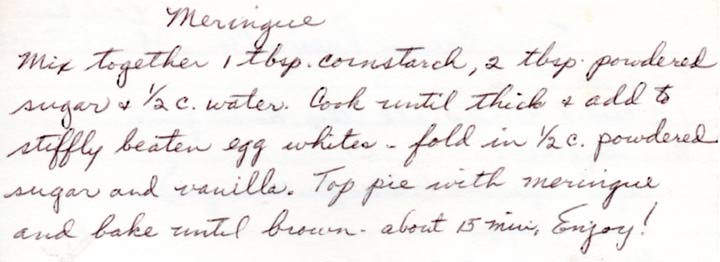 Meringue
Mix together 1 tbsp. cornstarch, 2 tbsp. powdered
sugar & 1/2 c. water. Cook until thick & add to
stiffly beaten egg whites - fold in 1/2 c. powdered
sugar and vanilla. Top pie with meringue
and bake until brown - about 15 min. Enjoy!